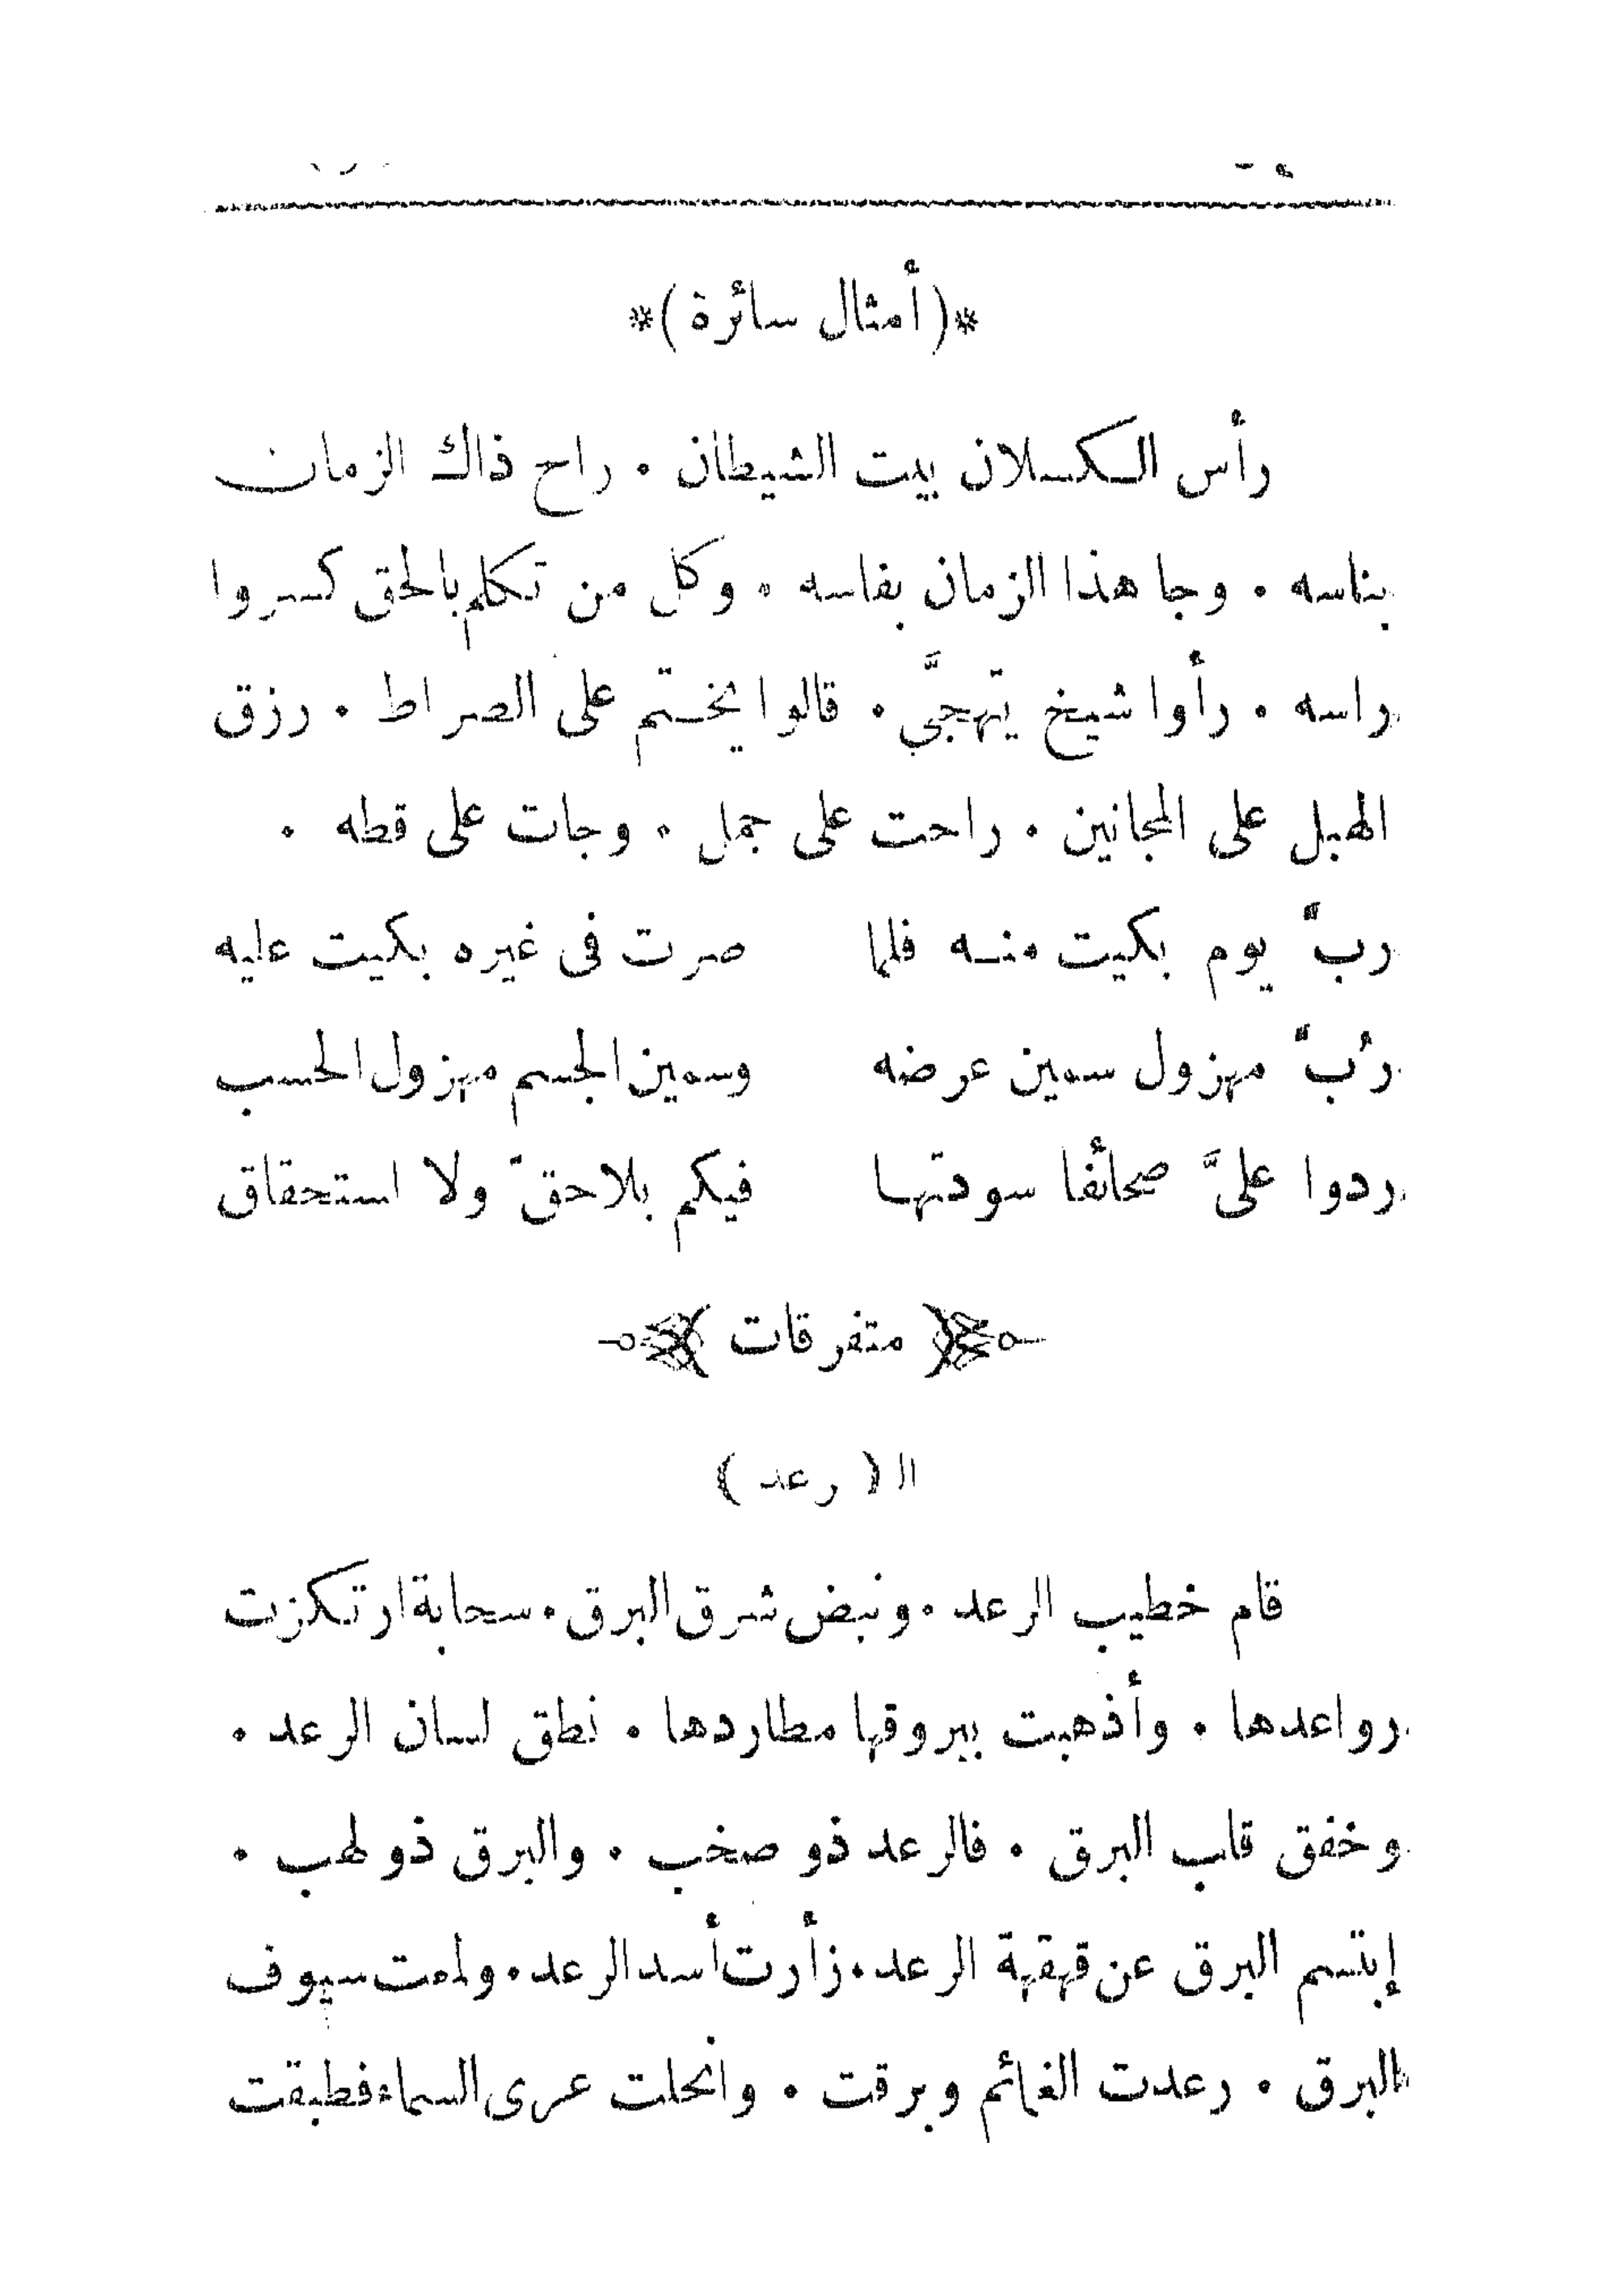 *( أمثال سائرة )*
رأس الكسلان بيت الشيطان . راح ذاك الزمان
بناسه . وجا هذا الزمان بفاسه . وكل من تكلم بالحق كسروا
راسه . رأوا شيخ يتهجَّى . قالوا يختم على الصراط . رزق
الهبل على المجانين . راحت على جمل . وجات على قطه .
ربّ يوم بكيت منه فلما صرت فى غيره بكيت عليه
رُبّ مهزول سمين عرضه وسمين الجسم مهزول الحسب
ردوا علىَّ صحائفا سودتها فيكم بلا حقّ ولا استحقاق
متفرقات
ال ( رعد )
قام خطيب الرعد . ونبض شرق البرق . سحابة ارتكزت
رواعدها . وأذهبت ببروقها مطاردها . نطق لسان الرعد .
وخفق قلب البرق . فالرعد ذو صخب . والبرق ذو لهب .
إبتسم البرق عن قهقهة الرعد . زأرت أسد الرعد . ولمعت سيوف
البرق . رعدت الغمائم وبرقت . وانحلت عرى السماء فطبقت